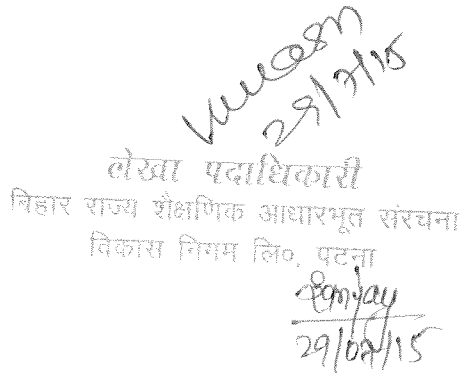 29/7/15
लेखा पदाधिकारी
बिहार राज्य शैक्षणिक आधारभूत संरचना
विकास निगम लि०, पटना
Sanjay
29/07/15